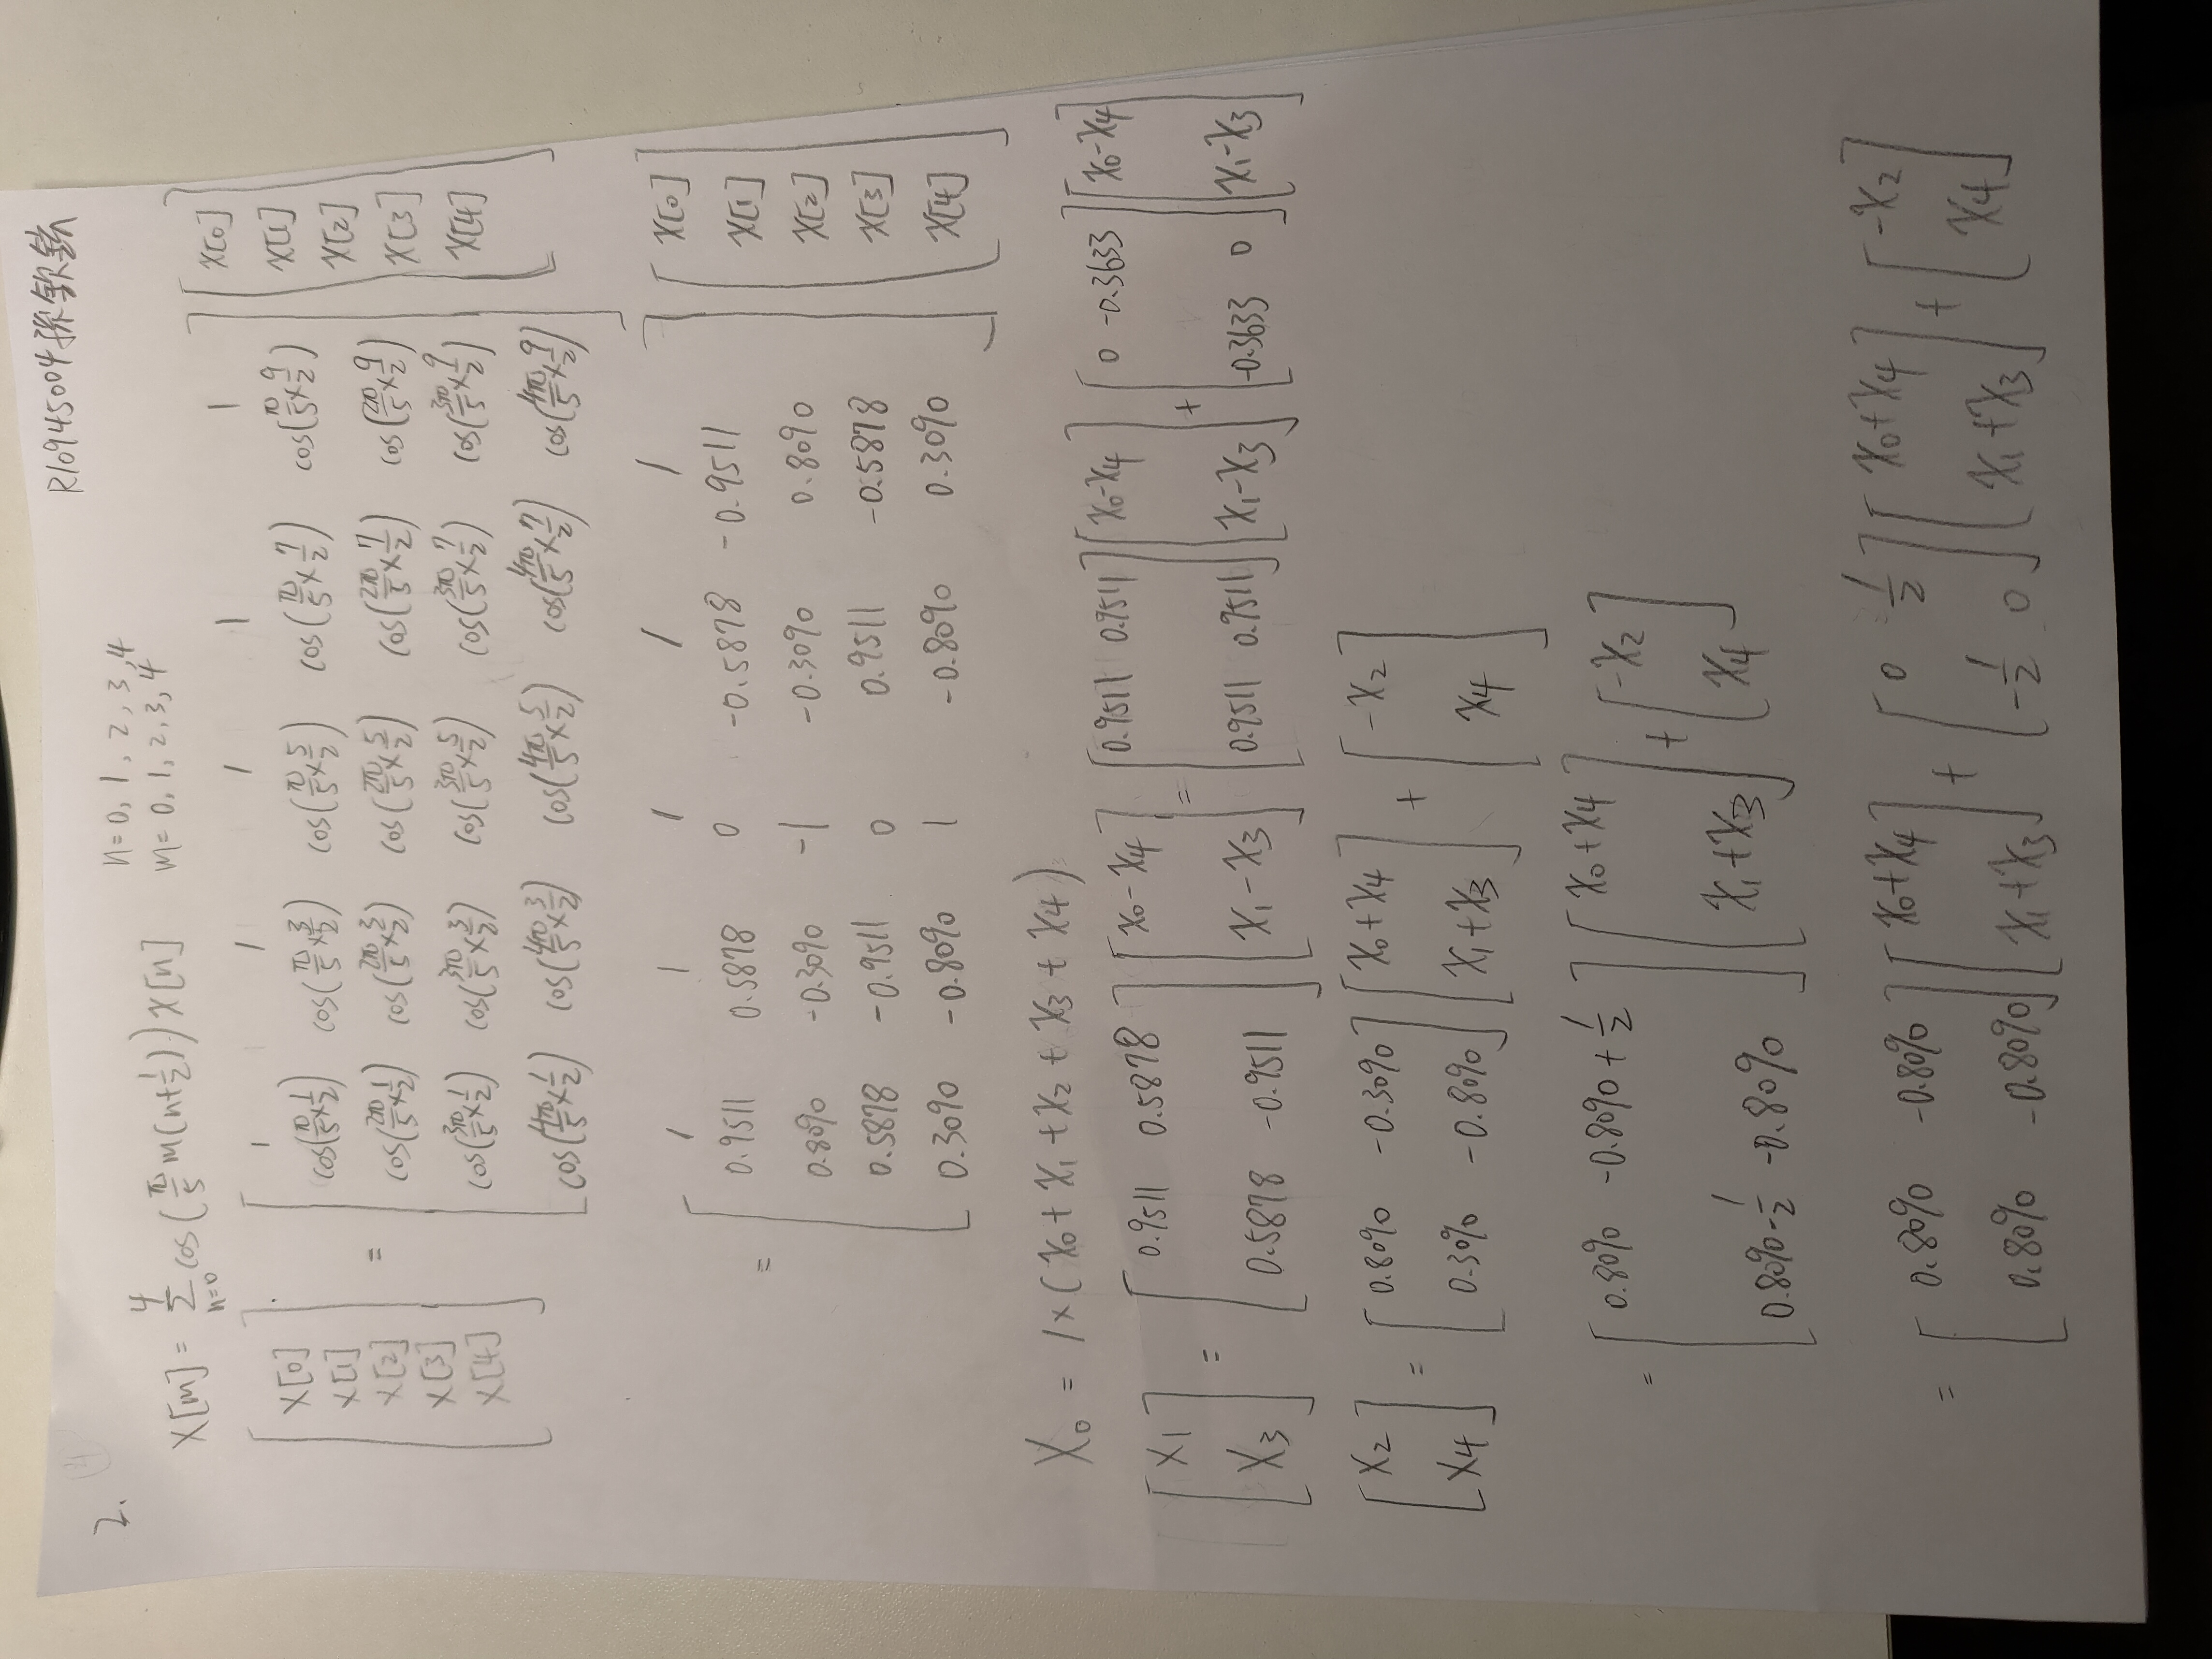 R10945004 孫欽鉉
2.
X[m] = Σ_{n=0}^{4} cos(π/5 m(n+1/2)) x[n]    n=0, 1, 2, 3, 4
m= 0, 1, 2, 3, 4
[X[0] X[1] X[2] X[3] X[4]] = [1 1 1 1 1 x[0]
cos(π/5×1/2) cos(π/5×3/2) cos(π/5×5/2) cos(π/5×7/2) cos(π/5×9/2) x[1]
cos(2π/5×1/2) cos(2π/5×3/2) cos(2π/5×5/2) cos(2π/5×7/2) cos(2π/5×9/2) x[2]
cos(3π/5×1/2) cos(3π/5×3/2) cos(3π/5×5/2) cos(3π/5×7/2) cos(3π/5×9/2) x[3]
cos(4π/5×1/2) cos(4π/5×3/2) cos(4π/5×5/2) cos(4π/5×7/2) cos(4π/5×9/2)] x[4]
= [1 1 1 1 1 x[0]
0.9511 0.5878 0 -0.5878 -0.9511 x[1]
0.8090 -0.3090 -1 -0.3090 0.8090 x[2]
0.5878 -0.9511 0 0.9511 -0.5878 x[3]
0.3090 -0.8090 1 -0.8090 0.3090] x[4]
X₀ = 1×(x₀+x₁+x₂+x₃+x₄)
[X₁; X₃] = [0.9511 0.5878; 0.5878 -0.9511] [x₀-x₄; x₁-x₃] = [0.9511 0.9511; 0.9511 0.9511] [x₀-x₄; x₁-x₃] + [0 -0.3633; -0.3633 0] [x₀-x₄; x₁-x₃]
[X₂; X₄] = [0.8090 -0.3090; 0.3090 -0.8090] [x₀+x₄; x₁+x₃] + [-x₂; x₄]
= [0.8090 -0.8090+1/2; 0.8090-1/2 -0.8090] [x₀+x₄; x₁+x₃] + [-x₂; x₄]
= [0.8090 -0.8090; 0.8090 -0.8090] [x₀+x₄; x₁+x₃] + [0 1/2; -1/2 0] [x₀+x₄; x₁+x₃] + [-x₂; x₄]